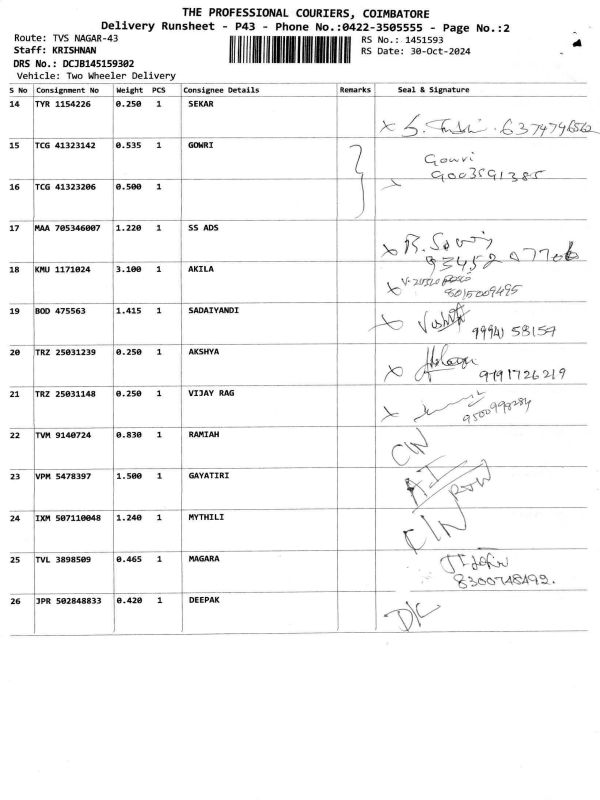 THE PROFESSIONAL COURIERS, COIMBATORE
Delivery Runsheet - P43 - Phone No.:0422-3505555 - Page No.:2
Route: TVS NAGAR-43
RS No.: 1451593
Staff: KRISHNAN
RS Date: 30-Oct-2024
DRS No.: DCJB145159302
Vehicle: Two Wheeler Delivery
S No Consignment No Weight PCS Consignee Details Remarks Seal & Signature
14 TYR 1154226 0.250 1 SEKAR
6374746562
15 TCG 41323142 0.535 1 GOWRI Gowri
9003591385
16 TCG 41323206 0.500 1
17 MAA 705346007 1.220 1 SS ADS
93452 07706
18 KMU 1171024 3.100 1 AKILA
8015009495
19 BOD 475563 1.415 1 SADAIYANDI
99941 58157
20 TRZ 25031239 0.250 1 AKSHYA
9791726219
21 TRZ 25031148 0.250 1 VIJAY RAG
9500998284
22 TVM 9140724 0.830 1 RAMIAH CIN
23 VPM 5478397 1.500 1 GAYATIRI
24 IXM 507110048 1.240 1 MYTHILI CIN
25 TVL 3898509 0.465 1 MAGARA
8300748492.
26 JPR 502848833 0.420 1 DEEPAK D/C